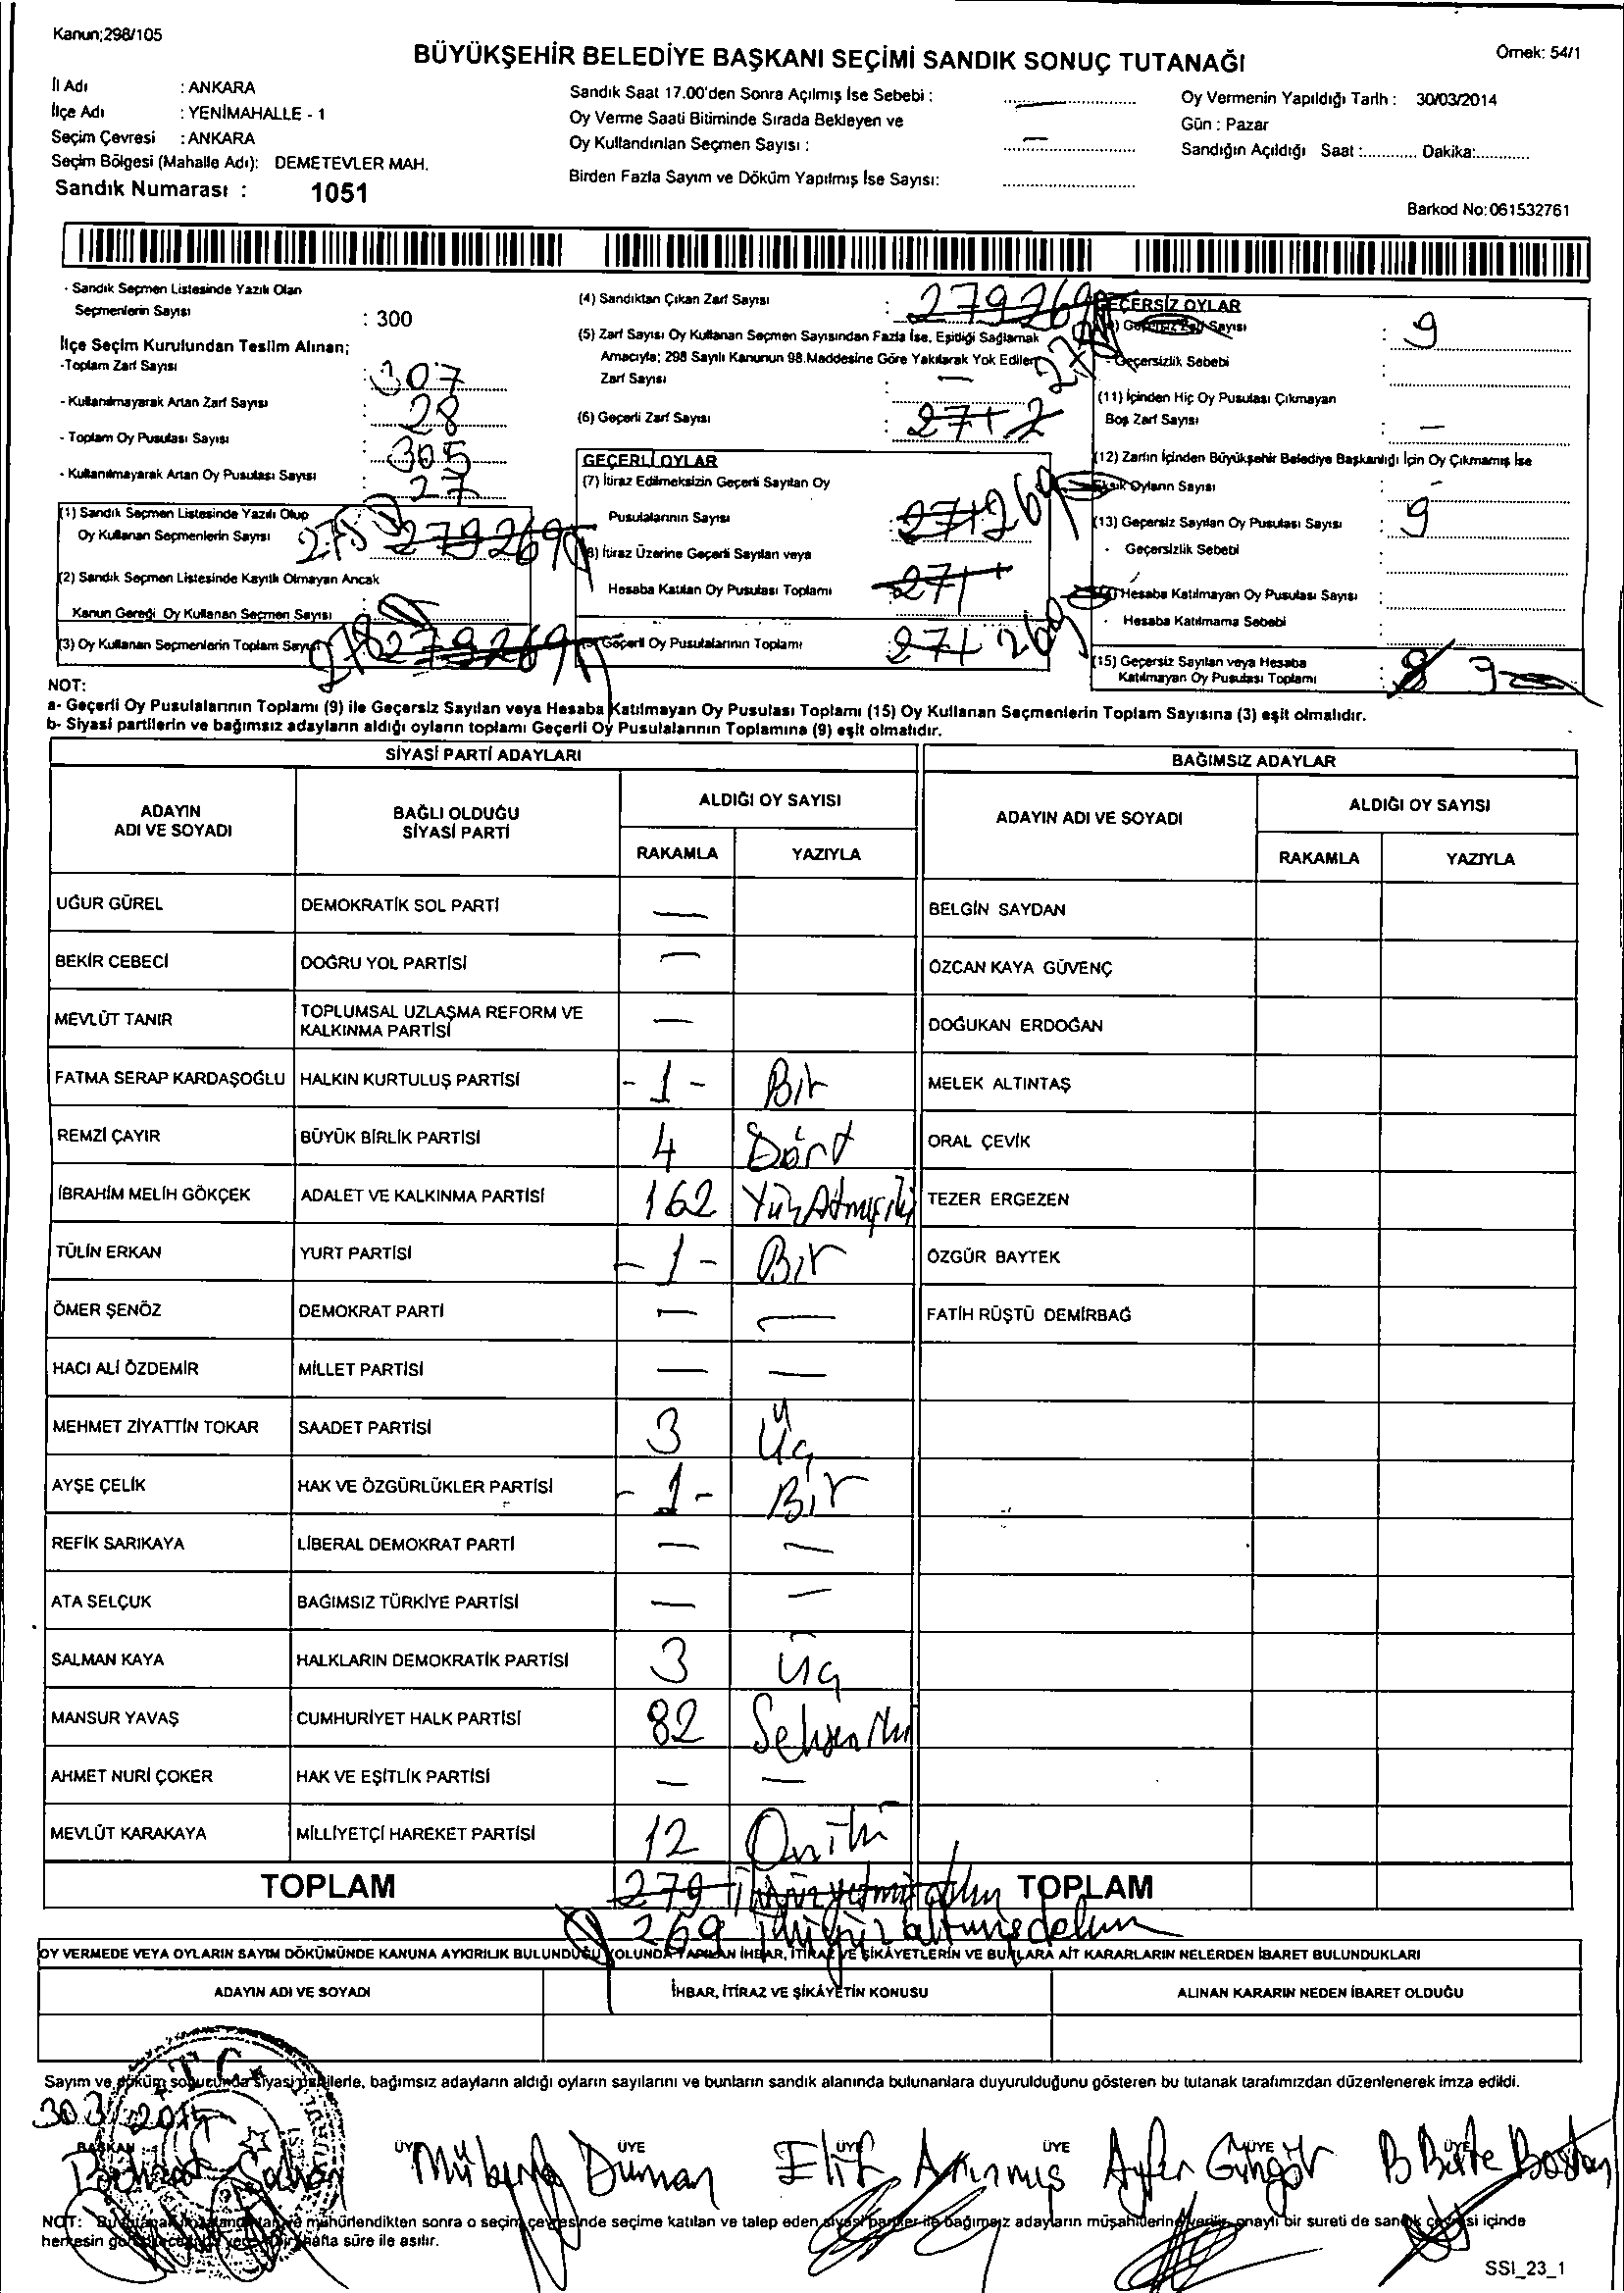 Kanun;298/105
BÜYÜKŞEHİR BELEDİYE BAŞKANI SEÇİMİ SANDIK SONUÇ TUTANAĞI
Örnek: 54/1
İl Adı : ANKARA
İlçe Adı : YENİMAHALLE - 1
Seçim Çevresi : ANKARA
Seçim Bölgesi (Mahalle Adı): DEMETEVLER MAH.
Sandık Numarası : 1051
Sandık Saat 17.00'den Sonra Açılmış İse Sebebi :
Oy Verme Saati Bitiminde Sırada Bekleyen ve
Oy Kullandırılan Seçmen Sayısı : —
Birden Fazla Sayım ve Döküm Yapılmış İse Sayısı:
Oy Vermenin Yapıldığı Tarih : 30/03/2014
Gün : Pazar
Sandığın Açıldığı Saat :............ Dakika:............
Barkod No:061532761
- Sandık Seçmen Listesinde Yazılı Olan
Seçmenlerin Sayısı : 300
İlçe Seçim Kurulundan Teslim Alınan;
-Toplam Zarf Sayısı : 307
- Kullanılmayarak Artan Zarf Sayısı : 28
- Toplam Oy Pusulası Sayısı : 305
- Kullanılmayarak Artan Oy Pusulası Sayısı : 27
(1) Sandık Seçmen Listesinde Yazılı Olup
Oy Kullanan Seçmenlerin Sayısı 278 279 269
(2) Sandık Seçmen Listesinde Kayıtlı Olmayan Ancak
Kanun Gereği Oy Kullanan Seçmen Sayısı
(3) Oy Kullanan Seçmenlerin Toplam Sayısı 278 279 269
(4) Sandıktan Çıkan Zarf Sayısı : 279 269
(5) Zarf Sayısı Oy Kullanan Seçmen Sayısından Fazla İse, Eşitliği Sağlamak
Amacıyla; 298 Sayılı Kanunun 98.Maddesine Göre Yakılarak Yok Edilen
Zarf Sayısı —
(6) Geçerli Zarf Sayısı : 271
GEÇERLİ OYLAR
(7) İtiraz Edilmeksizin Geçerli Sayılan Oy
Pusulalarının Sayısı : 271 269
(8) İtiraz Üzerine Geçerli Sayılan veya
Hesaba Katılan Oy Pusulası Toplamı 271
(9) Geçerli Oy Pusulalarının Toplamı 271 269
GEÇERSİZ OYLAR
(10) Geçersiz Zarf Sayısı : 9
- Geçersizlik Sebebi :
(11) İçinden Hiç Oy Pusulası Çıkmayan
Boş Zarf Sayısı : —
(12) Zarfın İçinden Büyükşehir Belediye Başkanlığı İçin Oy Çıkmamış İse
Eksik Oyların Sayısı : -
(13) Geçersiz Sayılan Oy Pusulası Sayısı : 9
- Geçersizlik Sebebi
(14) Hesaba Katılmayan Oy Pusulası Sayısı :
- Hesaba Katılmama Sebebi
(15) Geçersiz Sayılan veya Hesaba
Katılmayan Oy Pusulası Toplamı : 8 9
NOT:
a- Geçerli Oy Pusulalarının Toplamı (9) ile Geçersiz Sayılan veya Hesaba Katılmayan Oy Pusulası Toplamı (15) Oy Kullanan Seçmenlerin Toplam Sayısına (3) eşit olmalıdır.
b- Siyasi partilerin ve bağımsız adayların aldığı oyların toplamı Geçerli Oy Pusulalarının Toplamına (9) eşit olmalıdır.
SİYASİ PARTİ ADAYLARI
ADAYIN ADI VE SOYADI
BAĞLI OLDUĞU SİYASİ PARTİ
ALDIĞI OY SAYISI
RAKAMLA YAZIYLA
UĞUR GÜREL DEMOKRATİK SOL PARTİ —
BEKİR CEBECİ DOĞRU YOL PARTİSİ —
MEVLÜT TANIR TOPLUMSAL UZLAŞMA REFORM VE KALKINMA PARTİSİ —
FATMA SERAP KARDAŞOĞLU HALKIN KURTULUŞ PARTİSİ - 1 - Bir
REMZİ ÇAYIR BÜYÜK BİRLİK PARTİSİ 4 Dört
İBRAHİM MELİH GÖKÇEK ADALET VE KALKINMA PARTİSİ 162 YüzAtmışiki
TÜLİN ERKAN YURT PARTİSİ - 1 - Bir
ÖMER ŞENÖZ DEMOKRAT PARTİ — —
HACI ALİ ÖZDEMİR MİLLET PARTİSİ — —
MEHMET ZİYATTİN TOKAR SAADET PARTİSİ 3 Üç
AYŞE ÇELİK HAK VE ÖZGÜRLÜKLER PARTİSİ - 1 - Bir
REFİK SARIKAYA LİBERAL DEMOKRAT PARTİ — —
ATA SELÇUK BAĞIMSIZ TÜRKİYE PARTİSİ — —
SALMAN KAYA HALKLARIN DEMOKRATİK PARTİSİ 3 Üç
MANSUR YAVAŞ CUMHURİYET HALK PARTİSİ 82 Seksen iki
AHMET NURİ ÇOKER HAK VE EŞİTLİK PARTİSİ — —
MEVLÜT KARAKAYA MİLLİYETÇİ HAREKET PARTİSİ 12 Oniki
TOPLAM 279
269 ikiyüzaltmışdokuz
BAĞIMSIZ ADAYLAR
ADAYIN ADI VE SOYADI
ALDIĞI OY SAYISI
RAKAMLA YAZIYLA
BELGİN SAYDAN
ÖZCAN KAYA GÜVENÇ
DOĞUKAN ERDOĞAN
MELEK ALTINTAŞ
ORAL ÇEVİK
TEZER ERGEZEN
ÖZGÜR BAYTEK
FATİH RÜŞTÜ DEMİRBAĞ
TOPLAM
OY VERMEDE VEYA OYLARIN SAYIM DÖKÜMÜNDE KANUNA AYKIRILIK BULUNDUĞU YOLUNDA YAPILAN İHBAR, İTİRAZ VE ŞİKÂYETLERİN VE BUNLARA AİT KARARLARIN NELERDEN İBARET BULUNDUKLARI
ADAYIN ADI VE SOYADI İHBAR, İTİRAZ VE ŞİKÂYETİN KONUSU ALINAN KARARIN NEDEN İBARET OLDUĞU
Sayım ve döküm sonucunda siyasi partilerle, bağımsız adayların aldığı oyların sayılarını ve bunların sandık alanında bulunanlara duyurulduğunu gösteren bu tutanak tarafımızdan düzenlenerek imza edildi.
30.3.2014
T.C.
BAŞKAN ÜYE ÜYE ÜYE ÜYE ÜYE ÜYE
Duman Elif Ayfer Güngör
NOT: Bu tutanak mühürlendikten sonra o seçim çevresinde seçime katılan ve talep eden siyasi partiler ile bağımsız adayların müşahitlerine verilir, onaylı bir sureti de sandık çevresi içinde
herkesin hafta süre ile asılır.
SSI_23_1